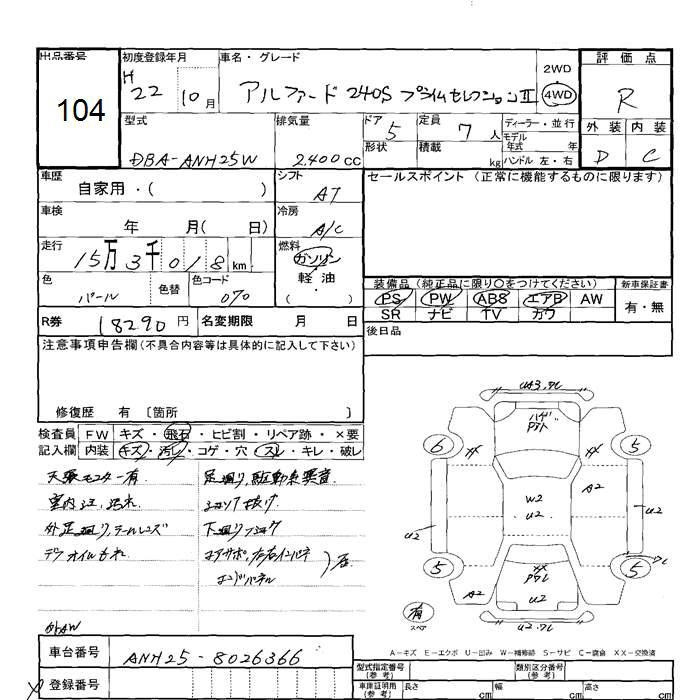 出品番号
104
初度登録年月
H 22 10月
車名・グレード
アルファード 240S プライムセレクションII
2WD
4WD
評価点
R
型式
DBA-ANH25W
排気量
2.400cc
ドア 5
定員 7人
形状
積載 kg
ディーラー・並行
モデル
年式 年
ハンドル 左・右
外装 内装
D C
車歴
自家用・( )
シフト
AT
セールスポイント (正常に機能するものに限ります)
車検
年 月( 日)
冷房
A/C
走行
15万3千018km
燃料
ガソリン
軽油
( )
色
パール
色替
色コード
070
装備品 (純正品に限り○をつけてください)
新車保証書
PS PW ABS エアB AW
有・無
SR ナビ TV カワ
R券 18290円
名変期限 月 日
後日品
注意事項申告欄 (不具合内容等は具体的に記入して下さい)
修復歴 有 〔箇所 〕
検査員
記入欄
FW キズ・飛石・ヒビ割・リペア跡・×要
内装 キズ・汚れ・コゲ・穴・スレ・キレ・破レ
天張モニター有
足廻り、駆動系異音
室内 汚れ
外足廻り、テールレンズ
下廻り
デフオイルもれ
コアサポ、左右インパネ
エンドパネル
右
外AW
車台番号 ANH25-8026366
登録番号
UA3.アレ
6
5
××
××
A2
W2
U2
U2
U2
5
5
××
A2
U2
U2.アレ
有
スペア
A-キズ E-エクボ U-凹み W-補修跡 S-サビ C-腐食 XX-交換済
型式指定番号
(参考)
類別区分番号
(参考)
車庫証明用
(参考)
長さ cm
幅 cm
高さ cm